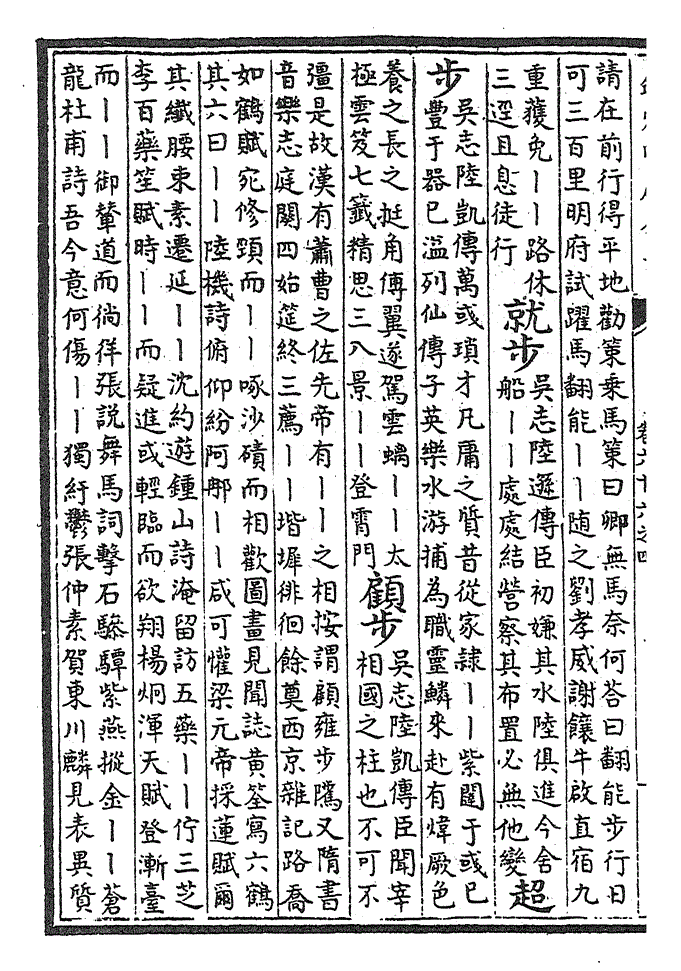 卷六十六之四
請在前行得平地勸策乘馬策曰卿無馬奈何荅曰翻能步行日
可三百里明府試躍馬翻能丨丨随之劉孝威謝饟牛啟直宿九
重獲免丨丨路休
三逕且息徒行
就步
吳志陸遜傳臣初嫌其水陸俱進今舍
船丨丨處處結營察其布置必無他變
超
步
吳志陸凱傳萬彧瑣才凡庸之質昔從家隷丨丨紫闥于彧已
豐于器已溢列仙傳子英樂水游捕為職靈鱗來赴有煒厥色
養之長之挺角傅翼遂駕雲螭丨丨太
極雲笈七籖精思三八景丨丨登霄門
顧步
吳志陸凱傳臣聞宰
相國之柱也不可不
彊是故漢有蕭曹之佐先帝有丨丨之相按謂顧雍步隲又隋書
音樂志庭闋四始筵終三薦丨丨堦墀徘徊餘奠西京雜記路喬
如鶴賦宛修頸而丨丨啄沙磧而相歡圖畫見聞誌黄筌寫六鶴
其六曰丨丨陸機詩俯仰紛阿那丨丨咸可懽梁元帝採蓮賦爾
其纎腰束素遷延丨丨沈約遊鍾山詩淹留訪五藥丨丨佇三芝
李百藥笙賦時丨丨而疑進或輕臨而欲翔楊炯渾天賦登漸臺
而丨丨御輦道而徜徉張説舞馬詞擊石驂驔紫燕摐金丨丨蒼
龍杜甫詩吾今意何傷丨丨獨紆鬱張仲素賀東川麟見表異質